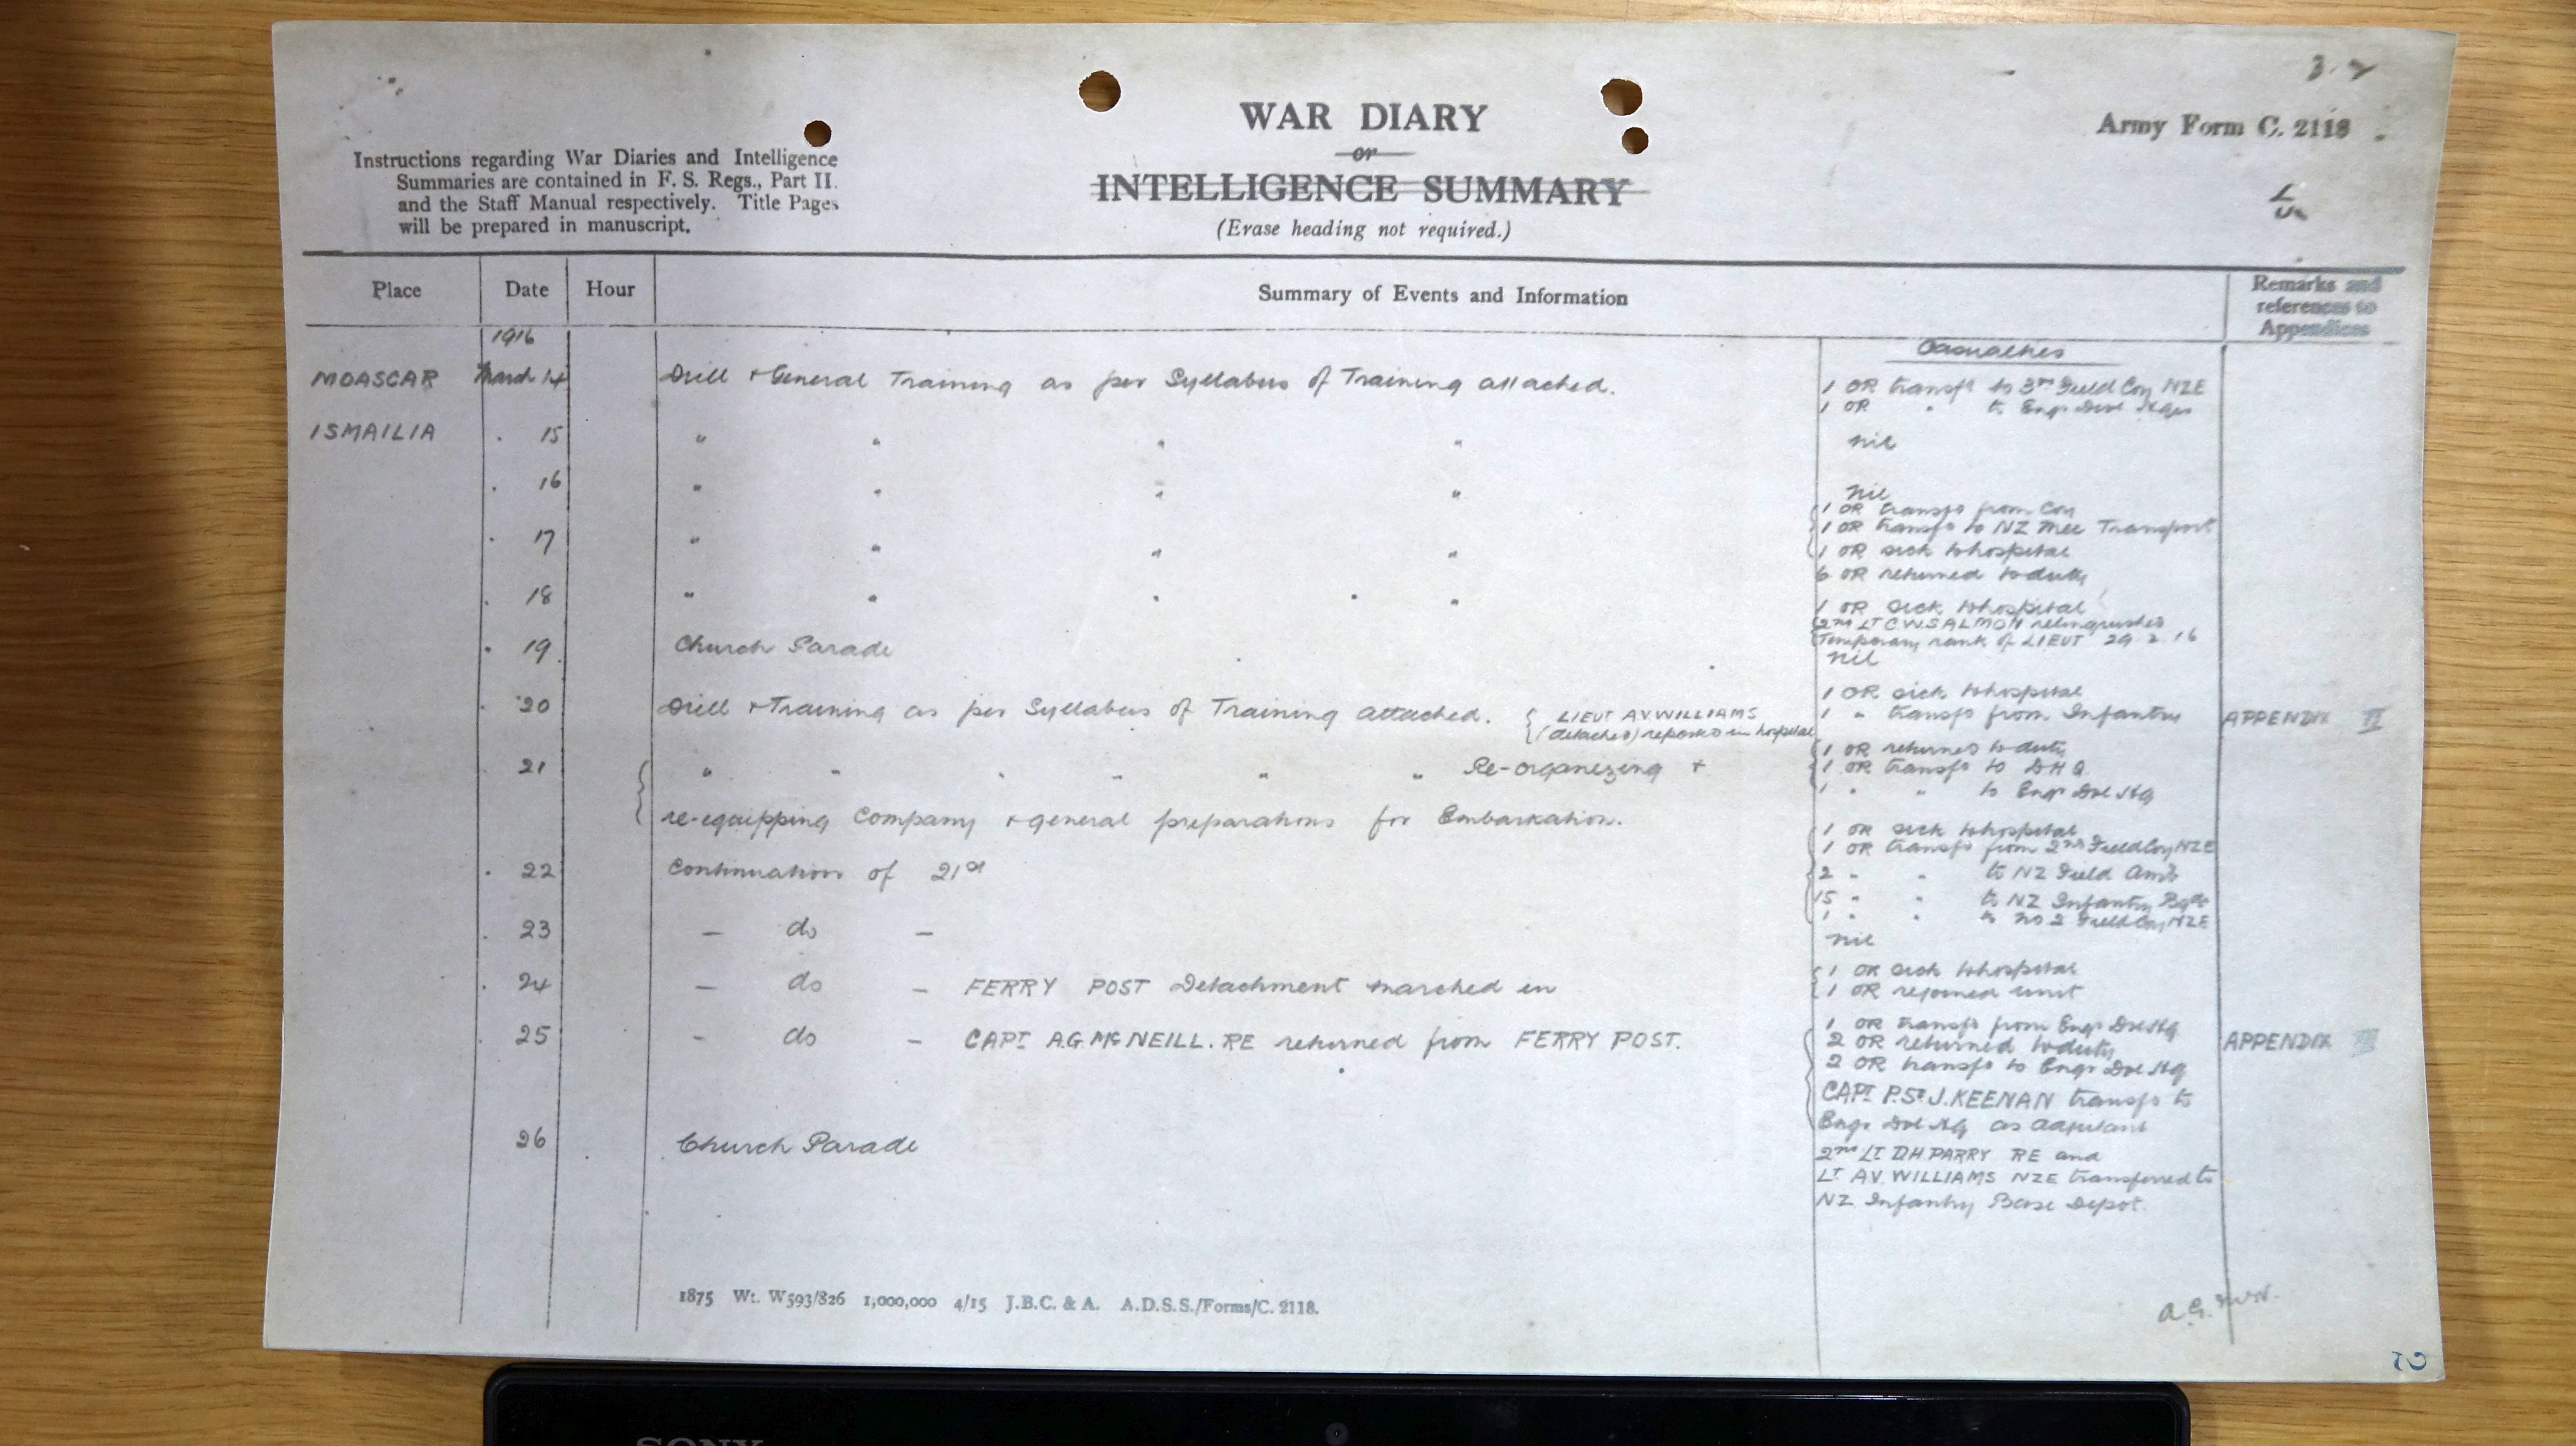 WAR DIARY
or
INTELLIGENCE SUMMARY
(Erase heading not required.)
Army Form C. 2118
Instructions regarding War Diaries and Intelligence
Summaries are contained in F. S. Regs., Part II.
and the Staff Manual respectively. Title Pages
will be prepared in manuscript.
Place Date Hour Summary of Events and Information Remarks and references to Appendices
1916
Casualties
MOASCAR March 14 Drill + General Training as per Syllabus of Training attached. 1 OR transfd to 3rd Field Coy NZE
1 OR " to Engr Divl Hqrs
ISMAILIA " 15 " " " " nil
" 16 " " " " nil
1 OR transfd from Coy
1 OR transfd to NZ Mec Transport
" 17 " " " " 1 OR sick to hospital
6 OR returned to duty
" 18 " " " " " 1 OR sick to hospital
2nd LT C.W. SALMON relinquished
Temporary rank of LIEUT 29.2.16
" 19 Church Parade nil
" 20 Drill + Training as per Syllabus of Training attached. { LIEUT A.V. WILLIAMS
(detached) reported in hospital
1 OR sick to hospital
1 " transfd from Infantry APPENDIX II
" 21 " " " " " " Re-organizing +
1 OR returned to duty
1 OR transfd to DHQ
1 " " to Engr Dvl HQ
re-equipping Company + general preparations for Embarkation.
1 OR sick to hospital
1 OR transfd from 2nd Field Coy NZE
" 22 Continuation of 21st 2 " " to NZ Field Amb
15 " " to NZ Infantry Bgde
1 " " to No 2 Field Coy NZE
" 23 – do – nil
" 24 – do – FERRY POST Detachment marched in 1 OR sick to hospital
1 OR rejoined unit
25 – do – CAPT A.G. McNEILL. RE returned from FERRY POST. 1 OR transfd from Engr Dvl HQ
2 OR returned to duty APPENDIX III
2 OR transfd to Engr Dvl HQ
CAPT P. St. J. KEENAN transfd to
Engr Dvl HQ as adjutant
26 Church Parade 2nd LT D.H. PARRY RE and
LT A.V. WILLIAMS NZE transferred to
NZ Infantry Base Depot.
1875 Wt. W593/826 1,000,000 4/15 J.B.C. & A. A.D.S.S./Forms/C. 2118.
SONY